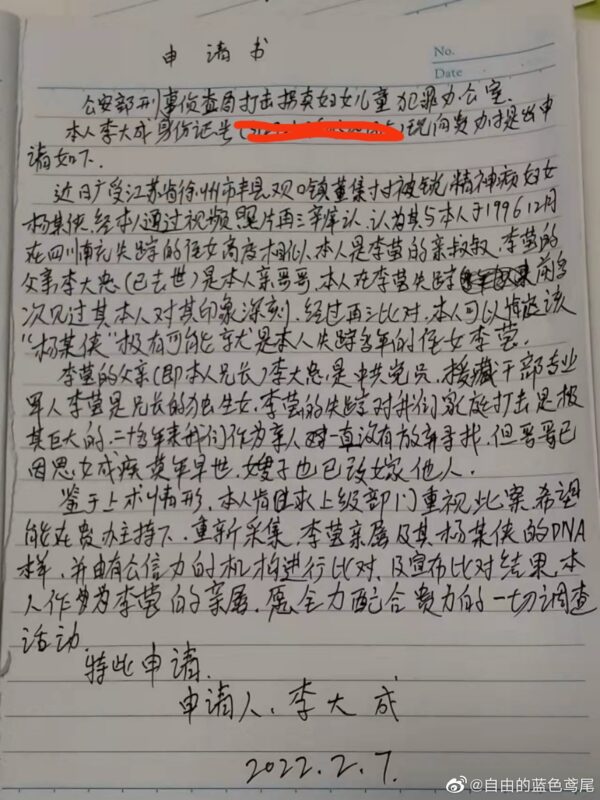 申请书
No.
Date
公安部刑事侦查局打击拐卖妇女儿童犯罪办公室.
本人李大成身份证号 现向贵办才提出申
请如下.
近日广受江苏省徐州市丰县观口镇董集村被锁精神病妇女
杨某侠.经本人通过视频.照片再三辨认.认为其与本人于1996 12月
在四川南充失踪的侄女高度相似.本人是李莹的亲叔叔.李莹的
父亲李大忠(已去世)是本人亲哥哥.本人在李莹失踪 前多
次见过其本人对其印象深刻.经过再三比对.本人可以确定该
“杨某侠”极有可能就是本人失踪多年的侄女李莹.
李莹的父亲(即本人兄长)李大忠.是中共党员.援藏干部专业
军人李莹是兄长的独生女.李莹的失踪对我们家庭打击是极
其巨大的.二十多年来我们作为亲人 一直没有放弃寻找.但哥哥已
因思女成疾英年早世.嫂子也已改嫁他人.
鉴于上术情形.本人肯且求上级部门重视此案.希望
能在贵办主持下.重新采集.李莹亲属及其杨某侠的DNA
样.并由有公信力的机构进行比对.及宣布比对结果.本
人作为李莹的亲属.愿全力配合贵力的一切调查
活动.
特此申请.
申请人.李大成
2022.2.7.
@自由的蓝色鸢尾